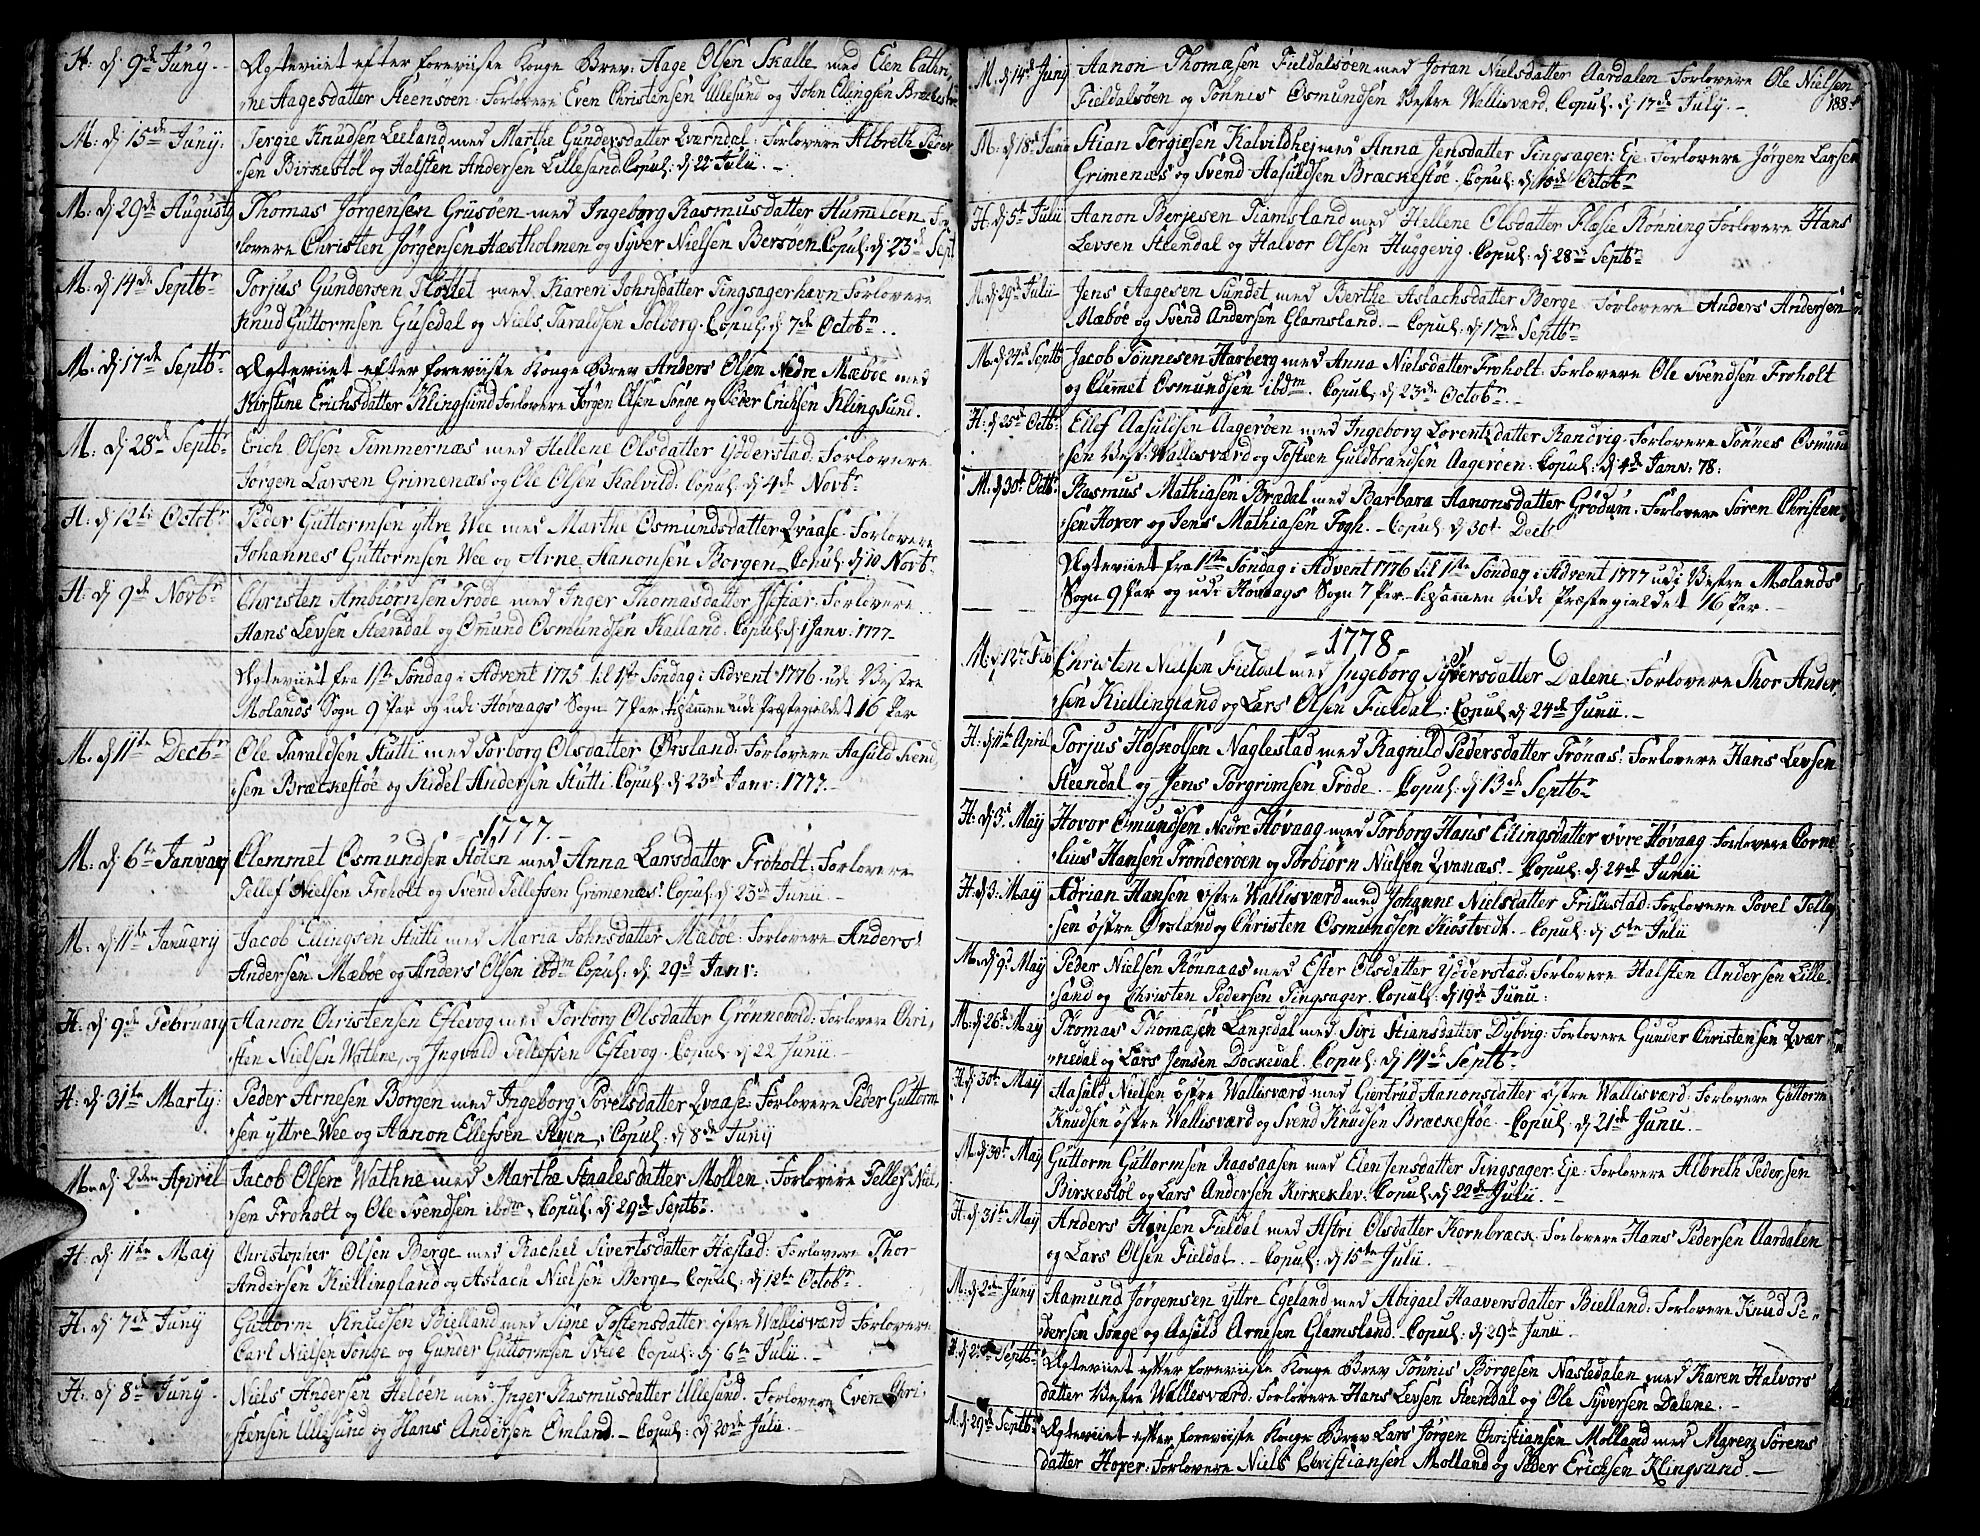 H: d: 9de Juny - Ægteviet efter foreviiste Konge Brev: Aage Olsen Skalle med Elen Cathri,
ne Aagesdatter Steensöen. Forlovere Even Christensen Ullesund og John Ellingsen Brækestöe
M: d: 15de Juny: Tergie Knudsen Leeland med Marthe Gundersdatter Qverndal: Forlovere Albreth Peder
sen Birkestöl og Halsten Andersen Lillesand. Copul: d: 22 Julii. -
M: d: 29de Augusty Thomas Jörgensen Grusöen med Ingeborg Rasmusdatter Humlöen. For
lovere Christen Jörgensen Hæstholmen og Syver Nielsen Bersöen Copul: d: 23de Sept
M: d: 14de Septbr Torjus Gundersen Flöstet med Karen Johnsdatter Tingsagerhavn Forlovere
Knud Guttormsen Gusedal og Niels Taraldsen Tolborg. Copul: d: 7de Octobr.
M: d: 17de Septbr Ægteviet efter foreviiste Konge Brev Anders Olsen Nedre Mæböe med
Kirstine Erichsdatter Klingsund Forlovere Jörgen Olsen Songe og Peder Erichsen Klingsund.
M: d: 28de Septbr Erich Olsen Timmernæs med Hellene Olsdatter Ydderstad. Forlovere
Jörgen Larsen Grimenæs og Ole Olsen Kalvild. Copul: d: 4de Novbr
H: d: 12te Octobr Peder Guttormsen yttre Wee med Marthe Osmundsdatter Qvaase. Forlovere
Johannes Guttormsen Wee og Arne Aanonsen Borgen Copul: d: 10 Novbr.
H: d: 9de Novbr Christen Ambiörnsen Trode med Inger Thomasdatter Isefiær. Forlovere
Hans Levsen Steendal og Omund Osmundsen Kalland. Copul: d: 1 Janv: 1777.
Ægteviiet fra 1ste Söndag i Advent 1775 til 1ste Söndag i Advent 1776 udi Vestre
Molands Sogn 9 Par og udi Hövaags Sogn 7 Par tilsammen udi Præstegieldet 16 Par
M: d: 11te Decbr Ole Taraldsen Stutti med Torborg Olsdatter Örsland. Forlovere Aasuld Svend,
sen Brækestöe og Kidel Andersen Stutti. Copul: d: 23de Janv: 1777.
1777.
M: d: 6te January Clemmet Osmundsen Stölen med Anna Larsdatter Froholt. Forlovere
Tellef Nielsen Froholt og Svend Tellefsen Grömenæs. Copul: d: 23de Junii -
M: d: 11te January Jacob Ellingsen Stutti med Maria Johnsdatter Mæböe: Forlovere Anders
Andersen Mæböe og Anders Olsen ibdm Copul: d: 29de Janv:
H: d: 9de February Aanon Christensen Eftevog med Torborg Olsdatter Grönnevold: Forlovere Chri,
sten Nielsen Watne, og Ingvald Tellefsen Eftevog. Copul: d: 22 Junii. -
H: d: 31te Marty: Peder Arnesen Borgen med Ingeborg Povelsdatter Qvaase: Forlovere Peder Guttorm
sen yttre Wee og Aanon Ellefsen Skyen, Copul: d: 8de Juny
M: d: 2den April Jacob Olsen Wathne med Marthe Staalesdatter Mollen. Forlovere Tellef Niel,
sen Froholt og Ole Svendsen ibdm. Copul: d: 29de Septbr.
H: d: 11te May Christopher Olsen Berge med Rachel Sivertsdatter Hæstad: Forlovere Thor
Andersen Kiellingland og Aslach Nielsen Berge Copul: d: 12te Octobr.
H: d: 7de Juny Guttorm Knudsen Bielland med Signe Tostensdatter östre Wallisværd Forlovere
Carl Nielsen Songe og Gunder Guttormsen Tvede Copul: d: 6te Julii. -
H: d: 8de Juny - Niels Andersen Heldöen med Inger Rasmusdatter Ullesund. Forlovere Even Chri,
stensen Ullesund og Hans Andersen Emland. - Copul: d: 20de Julii. -
M: d: 14de Juny Aanon Thomæsen Fieldalsöen med Joran Nielsdatter Aardalen Forlovere Ole Nielsen
Fieldalsöen og Tönnes Osmundsen Vestre Wallisværd. Copul: d: 17de July. - 188
M: d: 18de Juny Stian Tergiesen Kalvildhej med Anna Jensdatter Tingsager: Eje: Forlovere Jörgen Larsen
Grimenæs og Svend Aasuldsen Brækestöe. Copul: d: 15de Octobr
H: d: 5te Julii Aanon Berjesen Tiamsland med Hellene Olsdatter Flasie Rönning Forlovere Hans
Levsen Steendal og Halvor Olsen Huggevig. Copul: d: 28de Septbr
M: d: 29de Julii Jens Aagesen Sundet med Berthe Aslachsdatter Berge Forlovere Anders Andersen
Mæböe og Svend Andersen Glamsland. - Copul: d: 17de Septbr
M: d: 27de Septbr Jacob Tönnesen Haaberg med Anna Nielsdatter Froholt: Forlovere Ole Svendsen Froholt
og Clemet Osmundsen ibdm. Copul: d: 23de Octobr. -
H: d: 25de Octbr. Ellef Aasuldsen Aageröen med Ingeborg Lorentzdatter Randvig. Forlovere Tönnes Osmund
sen Vest: Wallisværd og Tosten Guldbrandsen Aageröen. Copul: d: 4de Janv: 78:
M: d: 30te Octbr. Rasmus Mathiasen Brædal med Barbara Aanonsdatter Grödum: Forlovere Sören Christen,
sen Hoxer og Jens Mathiasen Fogh. - Copul: d: 30te Decbr
Ægteviet fra 1ste Söndag i Advent 1776 til 1ste Söndag i Advent 1777 udi Vestre Molands
Sogn 9 Par og udi Hövaags Sogn 7 Par tilsammen udi Præstegieldet 16 Par.
-1778-
M: d: 12te Feb Christen Nielsen Fieldal med Ingeborg Syversdatter Dalene: Forlovere Thor Ander,
sen Kiellingland og Lars Olsen Fieldal: Copul: d: 24de Junii. -
H: d: 11te April Torjus Hoskolsen Naglestad med Ragnild Pedersdatter Trönæs: Forlovere Hans Levsen
Steendal og Jens Torgrimsen Trode. - Copul: d: 13de Septbr
H: d: 3de May Hovor Osmundsen Nedre Hövaag med Torborg Hans Ellingsdatter övre Hövaag. Forlovere Corne
lius Hansen Tronderöen og Torbiörn Nielsen Qvanæs. - Copul: d: 24de Junii
H: d: 3: May Adrian Hansen östre Wallisværd med Johanne Nielsdatter Frillestad: Forlovere Povel Tellef
sen östre Örsland og Christen Osmundsen Kiöstvedt. - Copul: d: 5te Julii
M: d: 9de May Peder Nielsen Rönnaas med Ester Olsdatter Ydderstad: Forlovere Halsten Andersen Lille,
sand og Christen Pedersen Tingsager. Copul: d: 19de Junii:
M: d: 26de May Thomas Thomæsen Langedal med Siri Stiansdatter Dybvig: Forlovere Gunder Christensen Qvær
nedal og Lars Jensen Dockedal. Copul: d: 14de Septbr
H: d: 30te May Aasuld Nielsen östre Wallisværd med Giertrud Aanonsdatter östre Wallisværd: Forlovere Guttorm
Knudsen östre Wallisværd og Svend Knudsen Brækestöe. - Copul: d: 21de Junii. -
M: d: 30te May Guttorm Guttormsen Raasaasen med Elen Jensdatter Tingsager: Eje: Forlovere Albreth Pedersen
Birkestöl og Lars Andersen Kirkeklev: Copul: d: 22de Julii. -
H: d: 31te May Anders Hansen Fieldal med Astri Olsdatter Kornbræk: Forlovere Hans Pedersen Aardalen
og Lars Olsen Fieldal. - Copul: d: 15te Julii.
M: d: 2de Juny Aamund Jörgensen yttre Egeland med Abigael Haaversdatter Bielland: Forlovere Knud Pe,
dersen Songe og Aasuld Arnesen Glamsland. Copul: d: 29de Junii.
Septbr Ægteviet efter foreviiste Konge Brev Tönnis Börgesen Nastedalen med Karen Halvors
datter Vestre Wallisværd. Forlovere Hans Levsen Steendal og Ole Syversen Dalene. -
M: d: 29de Septbr Ægteviet efter foreviiste Konge Brev Lars Jörgen Christiansen Molland med Maren Sörens
datter Hoxer: Forlovere Niels Christiansen Molland og Peder Erichsen Klingsund. -